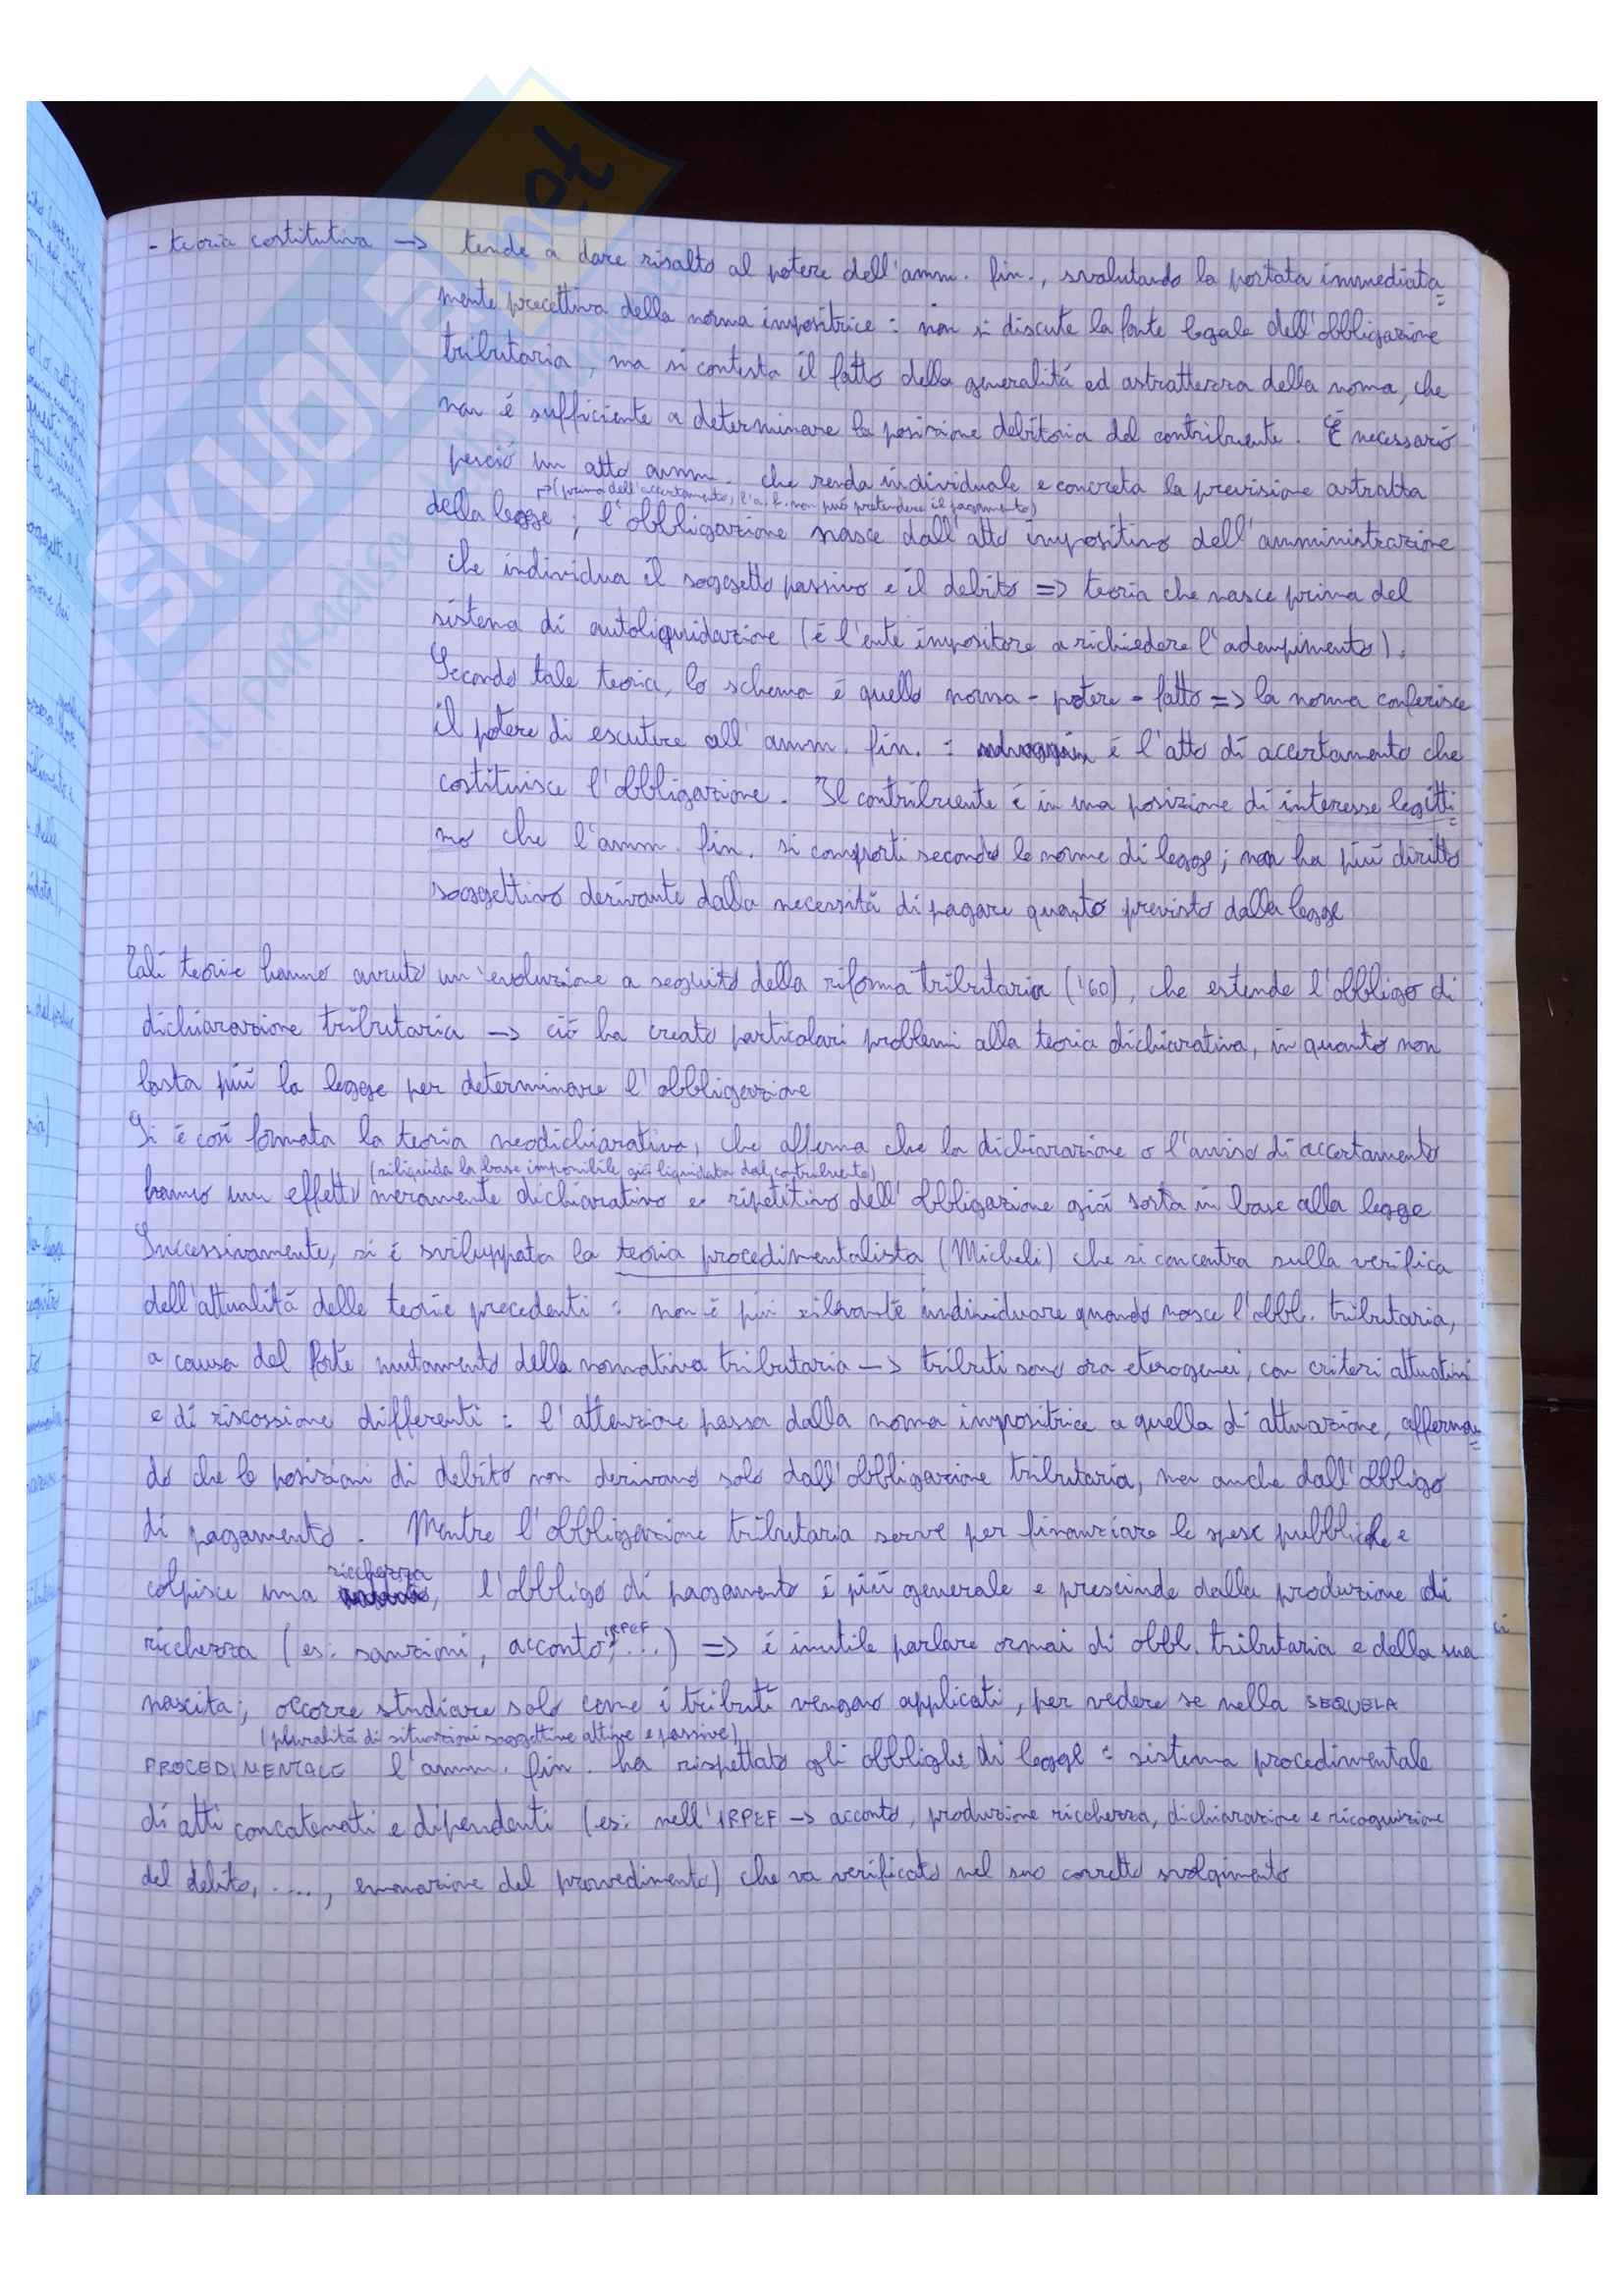 - teoria costitutiva -> tende a dare risalto al potere dell'amm. fin., svalutando la portata immediata=
mente precettiva della norma impositrice : non si discute la fonte legale dell'obbligazione
tributaria, ma si contesta il fatto della generalitá ed astrattezza della norma, che
non é sufficiente a determinare la posizione debitoria del contribuente. É necessario
perció un atto amm. che renda individuale e concreta la previsione astratta
->(prima dell'accertamento, l'a.f. non puó pretendere il pagamento)
della legge ; l'obbligazione nasce dall'atto impositivo dell'amministrazione
che individua il soggetto passivo e il debito => teoria che nasce prima del
sistema di autoliquidazione (é l'ente impositore a richiedere l'adempimento).
Secondo tale teoria, lo schema é quello norma - potere - fatto => la norma conferisce
il potere di escutere all'amm. fin. : é l'atto di accertamento che
costituisce l'obbligazione. Il contribuente é in una posizione di interesse legitti=
mo che l'amm. fin. si comporti secondo le norme di legge; non ha piú diritto
soggettivo derivante dalla necessitá di pagare quanto previsto dalla legge
Tali teorie hanno avuto un'evoluzione a seguito della riforma tributaria ('60), che estende l'obbligo di
dichiarazione tributaria -> ció ha creato particolari problemi alla teoria dichiarativa, in quanto non
basta piú la legge per determinare l'obbligazione
Si é cosí formata la teoria neodichiarativa, che afferma che la dichiarazione o l'avviso di accertamento
(riliquida la base imponibile giá liquidata dal contribuente)
hanno un effetto meramente dichiarativo e ripetitivo dell'obbligazione giá sorta in base alla legge
Successivamente, si é sviluppata la teoria procedimentalista (Micheli) che si concentra sulla verifica
dell'attualitá delle teorie precedenti : non é piú rilevante individuare quando nasce l'obbl. tributaria,
a causa del forte mutamento della normativa tributaria -> tributi sono ora eterogenei, con criteri attuativi
e di riscossione differenti : l'attenzione passa dalla norma impositrice a quella di attuazione, afferman=
do che le posizioni di debito non derivano solo dall'obbligazione tributaria, ma anche dall'obbligo
di pagamento. Mentre l'obbligazione tributaria serve per finanziare le spese pubbliche e
colpisce una ricchezza, l'obbligo di pagamento é piú generale e prescinde dalla produzione di
ricchezza (es: sanzioni, acconto IRPEF, ...) => é inutile parlare ormai di obbl. tributaria e della sua
nascita; occorre studiare solo come i tributi vengono applicati, per vedere se nella SEQUELA
(pluralitá di situazioni soggettive attive e passive)
PROCEDIMENTALE l'amm. fin. ha rispettato gli obblighi di legge : sistema procedimentale
di atti concatenati e dipendenti (es: nell'IRPEF -> acconto, produzione ricchezza, dichiarazione e ricognizione
del debito, ...., emanazione del provvedimento) che va verificato nel suo corretto svolgimento
SKUOLA.net
il paradiso